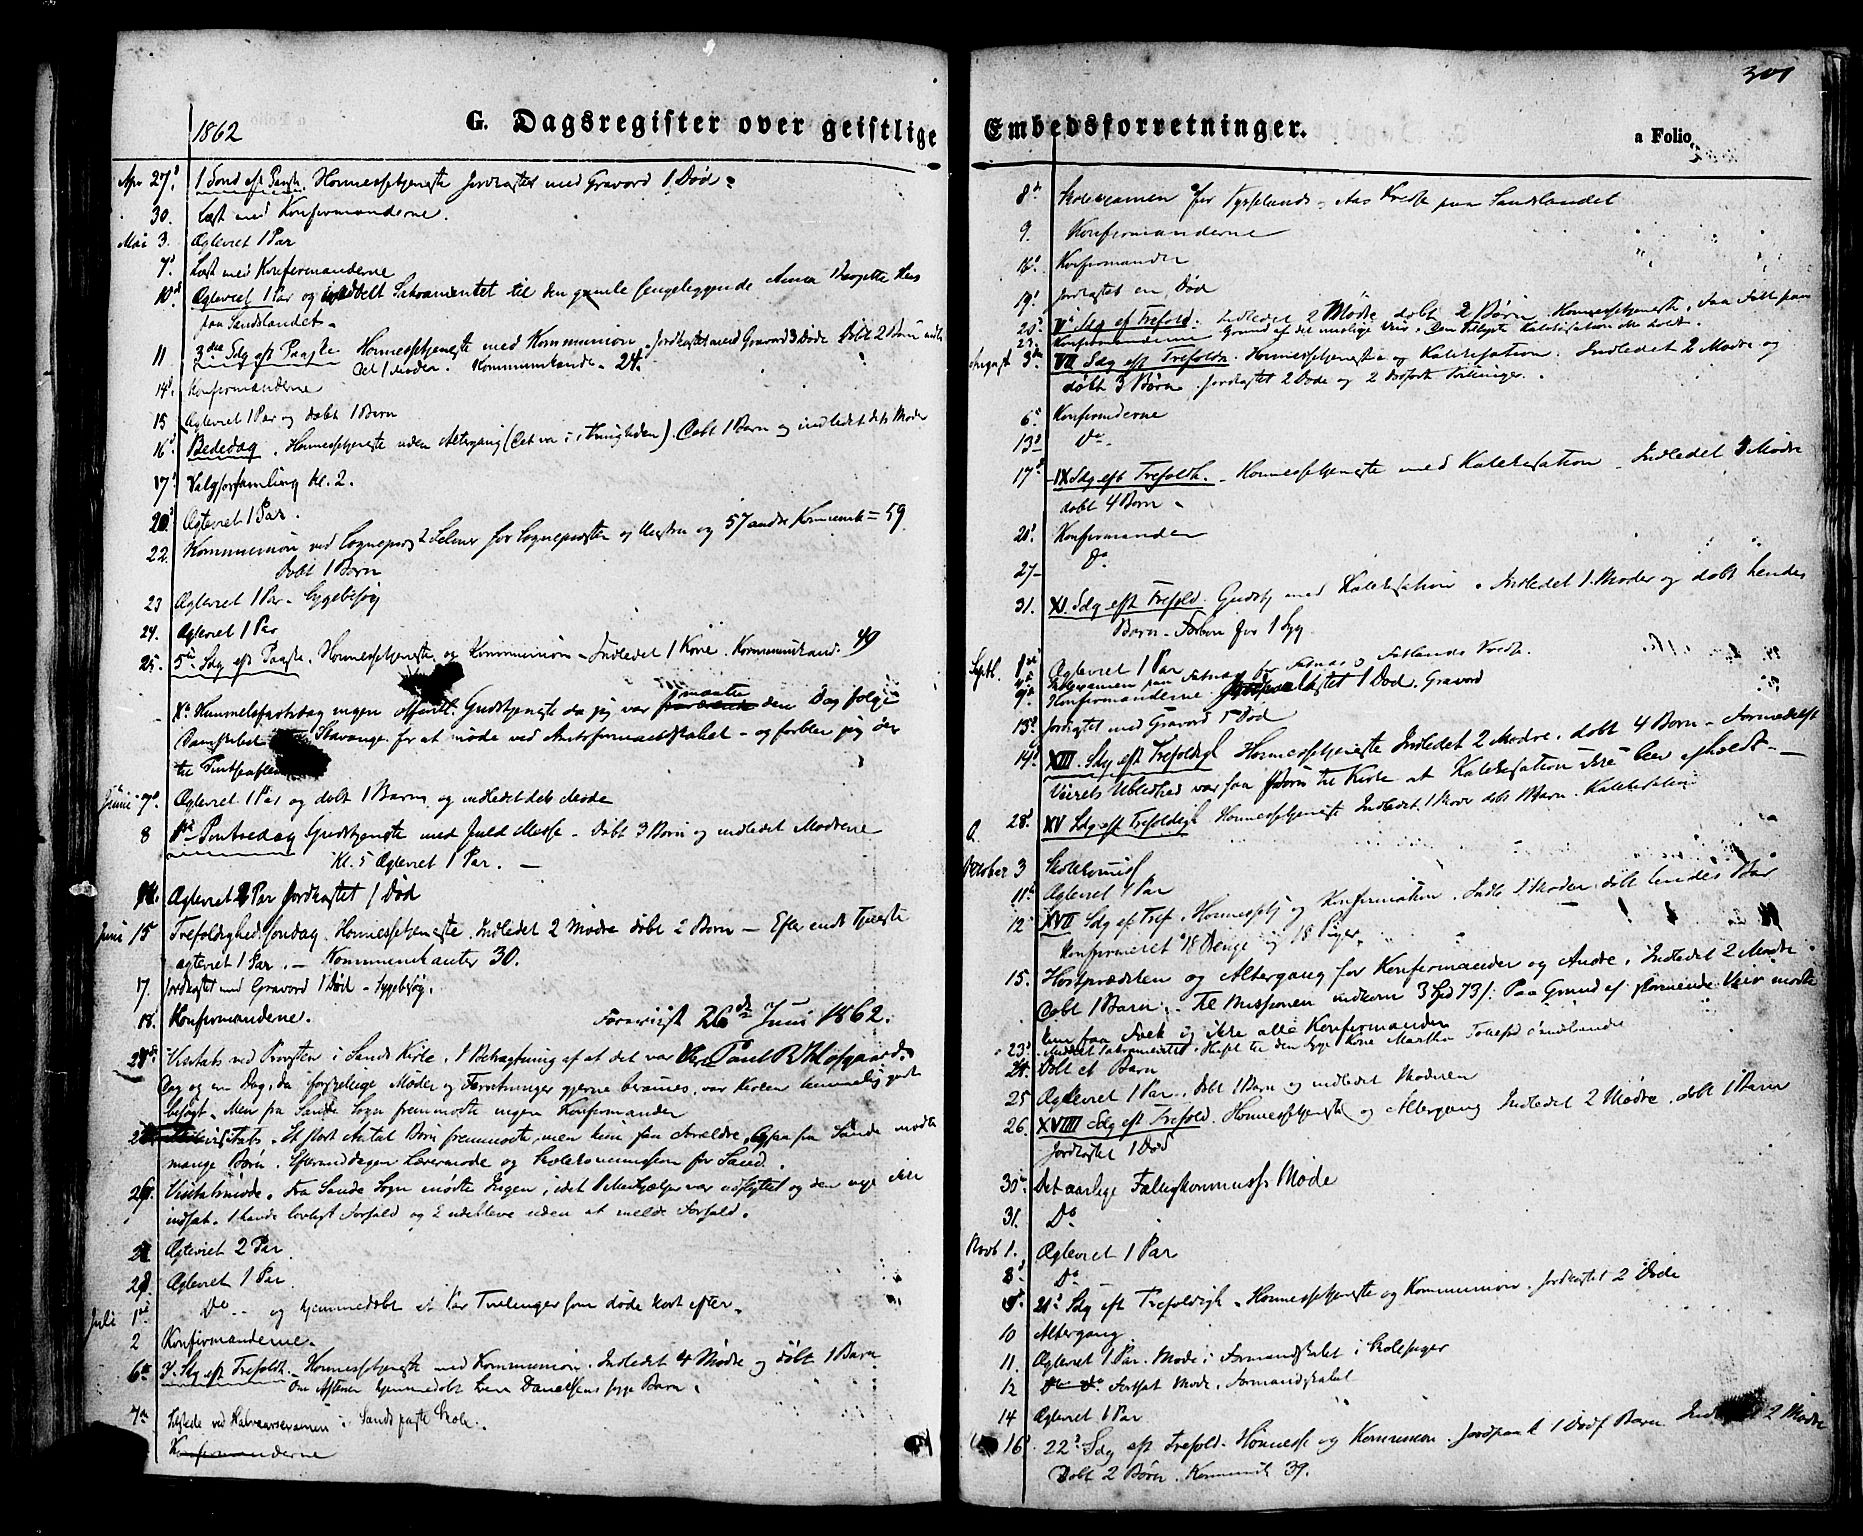 301
1862
G. Dagsregister over geistlige Embedsforretninger.
a Folio
Apr 27. 1 Sond eft Paaske. Høimessetjeneste Jordkastet med Gravord 1 Død.
30. Læst med Konfirmanderne.
Mai 3. Ægteviet 1 Par
7. Læst med Konfirmanderne
10. Ægteviet 1 Par og Sakramentet til den gamle sengeliggende Anna
paa Sandslandet.
11 3die Sdg eft Paaske Høimessetjeneste med Kommunion. Jordkastet med Gravord 3 Døde Døbt 2 Børn
1 Moder. Kommunikande. 24.
14. Konfirmanderne
15 Ægteviet 1 Par og døbt 1 Barn
16. Bededag. Høimessetjeneste uden Altergang (Det var i). Døbt 1 Barn og indledet dets Moder
17. Valgforsamling Kl. 2.
20. Ægteviet 1 Par.
22. Kommunion ved Selmer for Sognepresten og og 57 andre = 59
Døbt 1 Barn
23 Ægteviet 1 Par. Sygebesøg
24. Ægteviet 1 Par
25. 5te Sdg eft Paaske. Høimessetjeneste og Kommunion. Indledet 1 Kone. Kommunikand. 49
Kr Himmelfartsdag ingen offentl. Gudstjeneste da jeg var maatte den Dag følge
Stavanger for at møde ved Amtsformandskabet - og forblev jeg der
til
Juni 7. Ægteviet 1 Par og døbt 1 Barn og indledet dets Moder
8 1ste Pintsedag Gudstjeneste med fuld Messe. Døbt 3 Børn og indledet Mødrene
Kl. 5 Ægteviet 1 Par.
14. Ægteviet 2 Par Jordkastet 1 Død
Juni 15 Trefoldighedssøndag. Høimessetjeneste. Indledet 2 Mødre døbt 2 Børn - Efter endt Tjeneste
ægteviet 1 Par. - Kommunikanter 30.
17. Jordkastet med Gravord 1 Død - Sygebesøg.
18. Konfirmanderne.
Foreviist 26de Juni 1862.
Visitats ved Provsten i Sands Kirke. I Betragtning af at det var
Dag og en Dag, da forskjellige Møder og Forretninger gjerne berammes, var Kirken temmelig godt
besøgt. Men fra Sande Sogn fremmødte ingen Konfirmander
Et stort Antal Børn fremmødte, men kun faa Forældre. Ogsaa fra Sande mødte
mange Børn. Eftermiddagen Lærermøde og Skolekommission for Sand.
26. Visitatsmøde. Fra Sande Sogn mødte Ingen, idet Medhjælper var udflyttet og den nye ikke
indsat. 1 havde lovligt Forfald og 2 udebleve uden at melde Forfald.
Ægteviet 2 Par
28. Ægteviet 1 Par.
Juli 1. Do. og hjemmedøbt et Par Tvillinger som døde kort efter.
2 Konfirmanderne.
6te 3. Sdg eft Trefoldh. Høimessetjeneste med Kommunion. Indledet 4 Mødre og døbt 1 Barn
Om Aftenen hjemmedøbt Danielsens syge Barn.
7de Tilstede ved Halvaarsexamen i Sands faste Skole.
Konfirmanderne
8de Skoleexamen for Tysselands og Aas Kredse paa Sandslandet
9. Konfirmanderne
16. Konfirmander
19. Jordkastet en Død
20. Vte Sdg ef Trefold. Indledet 2 Mødre døbt 2 Børn. Høimessetjeneste. Faa Folk paa
Grund af det urolige Veir. Den tillyste Katekisation ikke holdt.
23. Konfirmanderne
August 3die VII Sdg eft Trefoldh. Høimessetjeneste og Katekisation. Indledet 2 Mødre og
døbt 3 Børn. Jordkastet 2 Døde og 2 dødfødte Tvillinger.
6. Konfirmanderne
13. Do.
17. IX Sdg eft Trefoldh. Høimessetjeneste med Katekisation. Indledet 4 Mødre
døbt 4 Børn.
20. Konfirmander
27 Do.
31. XI. Sdg eft Trefold. Gudstj med Katekisation. Indledet 1 Moder og døbt hendes
Barn. Forbøn for 1 Syg
Septb. 1ste Ægteviet 1 Par
4. Skoleexamen paa for og Fatlands Kredse.
9. Konfirmanderne. Jordkastet 1 Død. Gravord
13. Jordkastet med Gravord 5 Død
14. XIII. Sdg eft Trefoldigh Høimessetjeneste Indledet 2 Mødre. døbt 4 Børn - Formedelst
Veirets Ublidhed var faa Børn til Kirke at Katekisation ikke blev afholdt
28. XV Sdg eft Trefoldigh Høimessetjeneste Indledet 1 Kone døbt 1 Barn. Katekisation
October 3 Skolekomiss
11. Ægteviet 1 Par
12 XVII Sdg ef Tref. Høimessetj og Konfirmation. Indle 1 Moder, døbt hendes Bar
Konfirmeret 18 Drenge og 18 Piger.
15. Høstprædiken og Altergang for Konfirmander og Andre. Indledet 2 Mødre
Døbt 1 Barn. Til Missionen indkom 3 Spd 73 ſ. Paa Grund af stormende Veir mødte
kun faa Folk og ikke alle Konfirmander
23. Sakramentet til den syge Kone Martha
24. Døbt et Barn
25 Ægteviet 1 Par. Døbt 1 Barn og indledet Moderen
26. XVIIII Sdg eft Trefold. Høimessetjeneste og Altergang Indledet 2 Mødre. døbt 1 Barn
Jordkastet 1 Død
30. Det aarlige Fattigkommiss. Møde
31. Do
Novb 1. Ægteviet 1 Par
8. Do
9. 21. Sdg eft Trefoldigh. Høimessetjeneste og Kommunion. Jordkastet 2 Døde
10 Altergang
11. Ægteviet 1 Par. Møde i Formandskabet i Skolesager
12 Do Do. Fortsat Møde. Formandskabet
14 Ægteviet 6 Par
16. 22. Sdg eft Trefold. Høimesse og Kommunion. Jordpaak 1 Dødf Barn. 2 Mødre
Døbt 2 Børn. Kommunik 39.